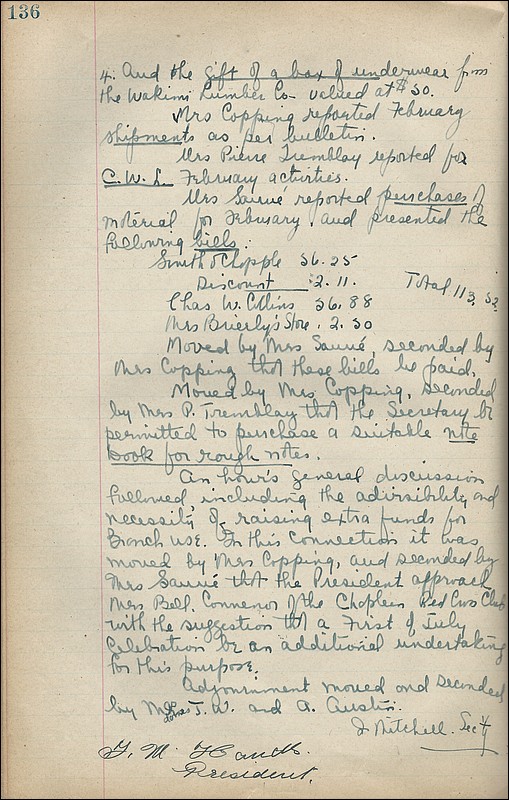 136
4. And the gift of a box of underwear from
the Wakimi Lumber Co- valued at $50.
Mrs Copping reported February
shipments as per bulletin.
Mrs Pierre Tremblay reported for
C.W.L. February activities.
Mrs Sauvé reported purchases of
material for February, and presented the
following bills.
Smith & Chapple 56.25
Discount 2.11. Total 113.52
Chas W. Collins 56.88
Mrs Brierly's Store. 2.50
Moved by Mrs Sauvé, seconded by
Mrs Copping that these bills be paid.
Moved by Mrs Copping, seconded
by Mrs P. Tremblay that the Secretary be
permitted to purchase a suitable note
book for rough notes.
An hour's general discussion
followed, including the advisibility and
necessity of raising extra funds for
Branch use. In this connection it was
moved by Mrs Copping, and seconded by
Mrs Sauvé that the President approach
Mrs Bell, Convenor of the Chapleau Red Cross Club
with the suggestion that a First of July
Celebration be an additional undertaking
for this purpose.
Adjournment moved and seconded
by J.W. and A. Austin.
J. Mitchell. Sec'y
President.